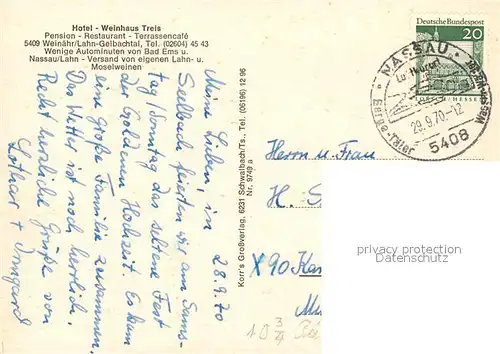 Hotel - Weinhaus Treis
Pension - Restaurant - Terrassencafé
5409 Weinähr/Lahn-Gelbachtal, Tel. (02604) 45 43
Wenige Autominuten von Bad Ems u.
Nassau/Lahn - Versand von eigenen Lahn- u.
Moselweinen
28.9.70
Meine Lieben, in
Seelbach feierten wir am Sams-
tag/Sonntag das seltene Fest
der Goldenen Hochzeit. Es kam
eine große Familie zusammen.
Das Wetter ist noch herrlich.
Recht herzliche Grüße von
Lothar + Irmgard
Korr's Großverlag, 6231 Schwalbach/Ts., Tel. (06196) 12 96
Nr. 9749 a
Deutsche Bundespost
20
HESSE
NASSAU
Luftkurort
Berg-Täler
29.9.70-12
5408
Herrn u. Frau
H.
X90
10 3/4
PAMV.DE
PAMV.DE